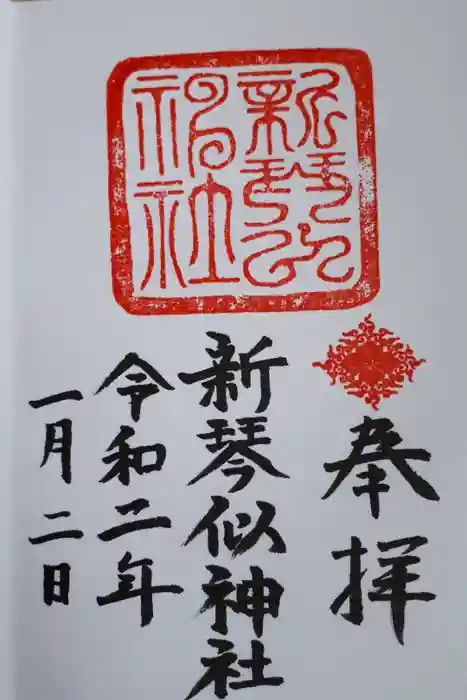 奉拝
新琴似神社
令和二年
一月二日
新琴似
神社